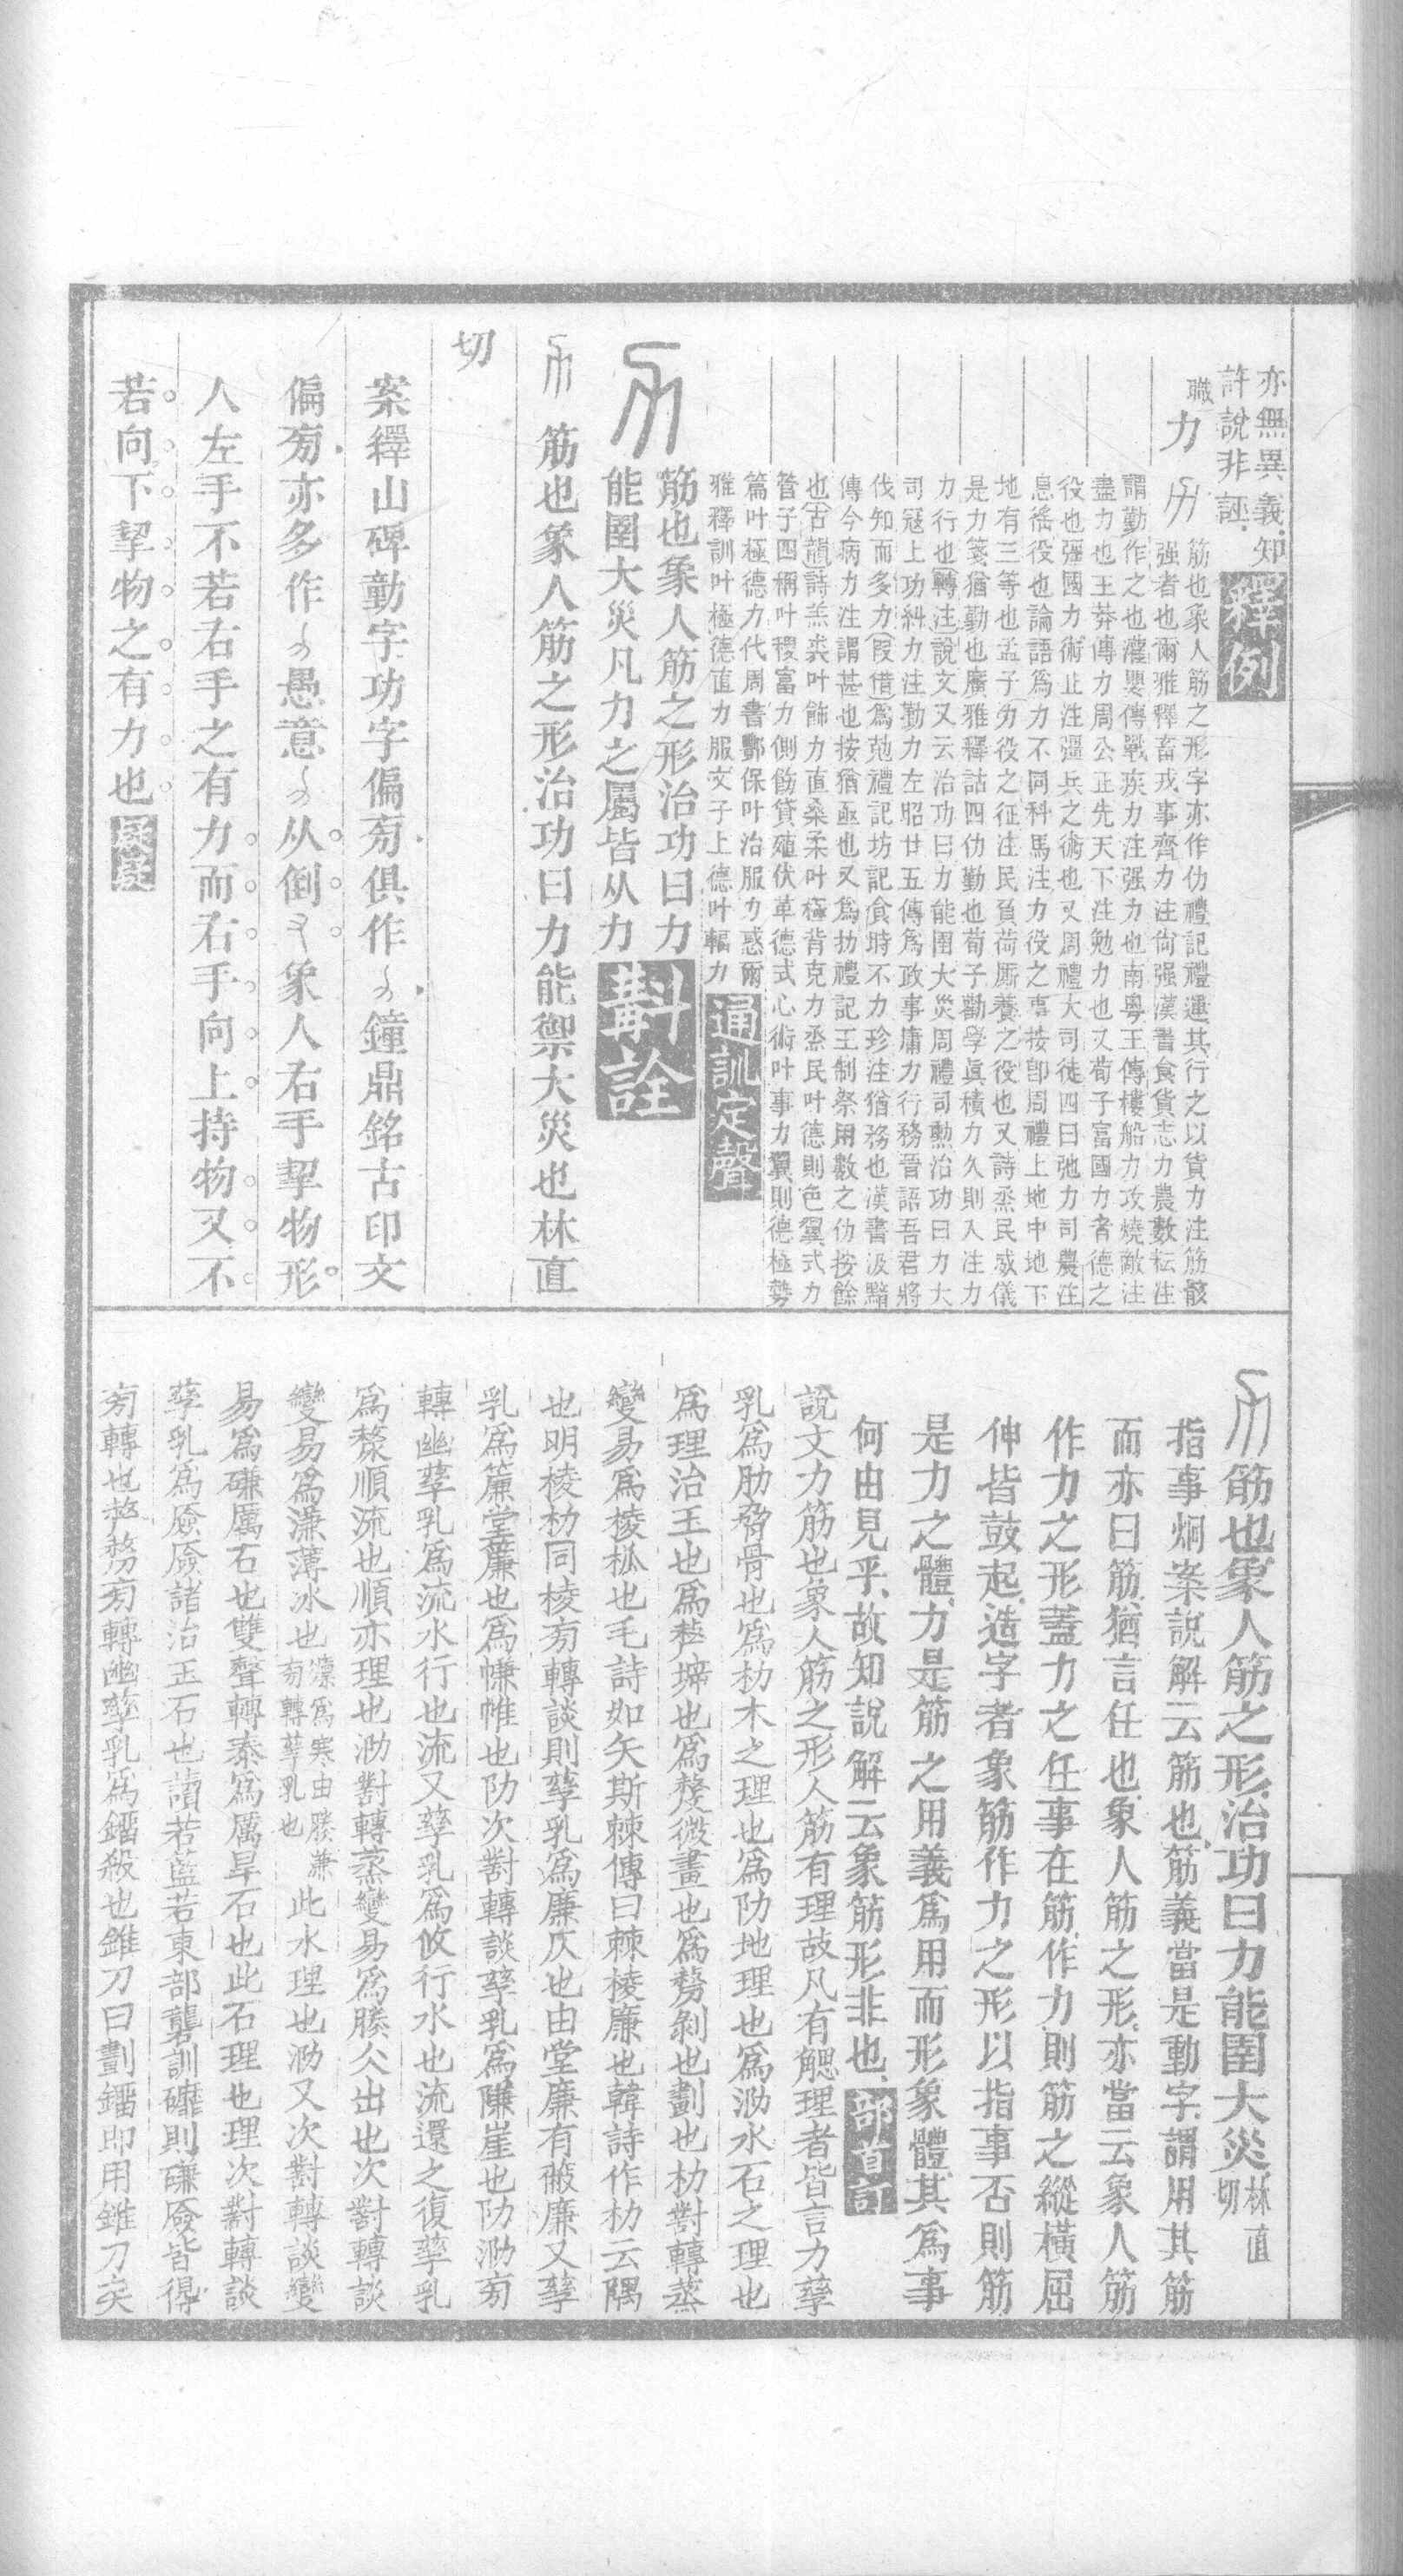 亦無異義知
許說非誣釋例
職力
筋也象人筋之形字亦作仂禮記禮運其行之以貨力注筋骸
强者也爾雅釋畜戎事齊力注尙强漢書食貨志力農數耘注
謂勤作之也灌嬰傳戰疾力注强力也南粵王傳樓船力攻燒敵注
盡力也王莽傳力周公正先天下注勉力也又荀子富國力者德之
役也彊國力術止注彊兵之術也又周禮大司徒四曰弛力司農注
息徭役也論語爲力不同科馬注力役之事按卽周禮上地中地下
地有三等也孟子力役之征注民負荷厮養之役也又詩烝民威儀
是力箋猶勤也廣雅釋詁四仂勤也荀子勸學眞積力久則入注力
力行也轉注說文又云治功曰力能圉大災周禮司勳治功曰力大
司寇上功糾力注勤力左昭廿五傳爲政事庸力行務晉語吾君將
伐知而多力叚借爲茍禮記坊記食時不力珍注猶務也漢書汲黯
傳今病力注謂甚也按猶亟也又爲扐禮記王制祭用數之仂按餘
也古韻詩羔裘叶飾力直桑柔叶極背克力烝民叶德則色翼式力
管子四稱叶稷富力側飭貸殖伏革德式心術叶事力翼則德極勢
篇叶極德力代周書酆保叶治服力惑爾
雅釋訓叶極德直力服文子上德叶輻力通訓定聲
筋也象人筋之形治功曰力
能圉大災凡力之屬皆从力斠詮
筋也象人筋之形治功曰力能禦大災也林直
切
案繹山碑動字功字偏㫄俱作鐘鼎銘古印文
偏㫄亦多作愚意从倒象人右手挈物形
人左手不若右手之有力而右手向上持物又不
若向下挈物之有力也
筋也象人筋之形治功曰力能圉大災林直切
指事炯案說解云筋也筋義當是動字謂用其筋
而亦曰筋猶言任也象人筋之形亦當云象人筋
作力之形蓋力之任事在筋作力則筋之縱橫屈
伸皆鼓起造字者象筋作力之形以指事否則筋
是力之體力是筋之用義爲用而形象體其爲事
何由見乎故知說解云象筋形非也部首訂
說文力筋也象人筋之形人筋有理故凡有䚡理者皆言力孳
乳爲肋脅骨也爲朸木之理也爲阞地理也爲泐水石之理也
爲理治玉也爲𡐨埽也爲嫠微畫也爲剺剝也劃也朸對轉蒸
變易爲棱柧也毛詩如矢斯棘傳曰棘棱廉也韓詩作朸云隅
也明棱朸同棱㫄轉談則孳乳爲廉仄也由堂廉有蔽廉又孳
乳爲簾堂簾也爲㡘帷也阞次對轉談孳乳爲隒崖也阞泐㫄
轉幽孳乳爲流水行也流又孳乳爲攸行水也流還之復孳乳
爲漦順流也順亦理也泐對轉蒸變易爲凌仌出也次對轉談
變易爲溓薄冰也凜爲寒由凌溓㫄轉孳乳也此水理也泐又次對轉談變
易爲磏厲石也雙聲轉泰爲厲旱石也此石理也理次對轉談
孳乳爲厱厱諸治玉石也讀若藍若東部礱訓䃺則磏厱皆得
㫄轉也𠩺剺㫄轉幽孳乳爲鎦殺也錐刀曰劃鎦卽用錐刀矣